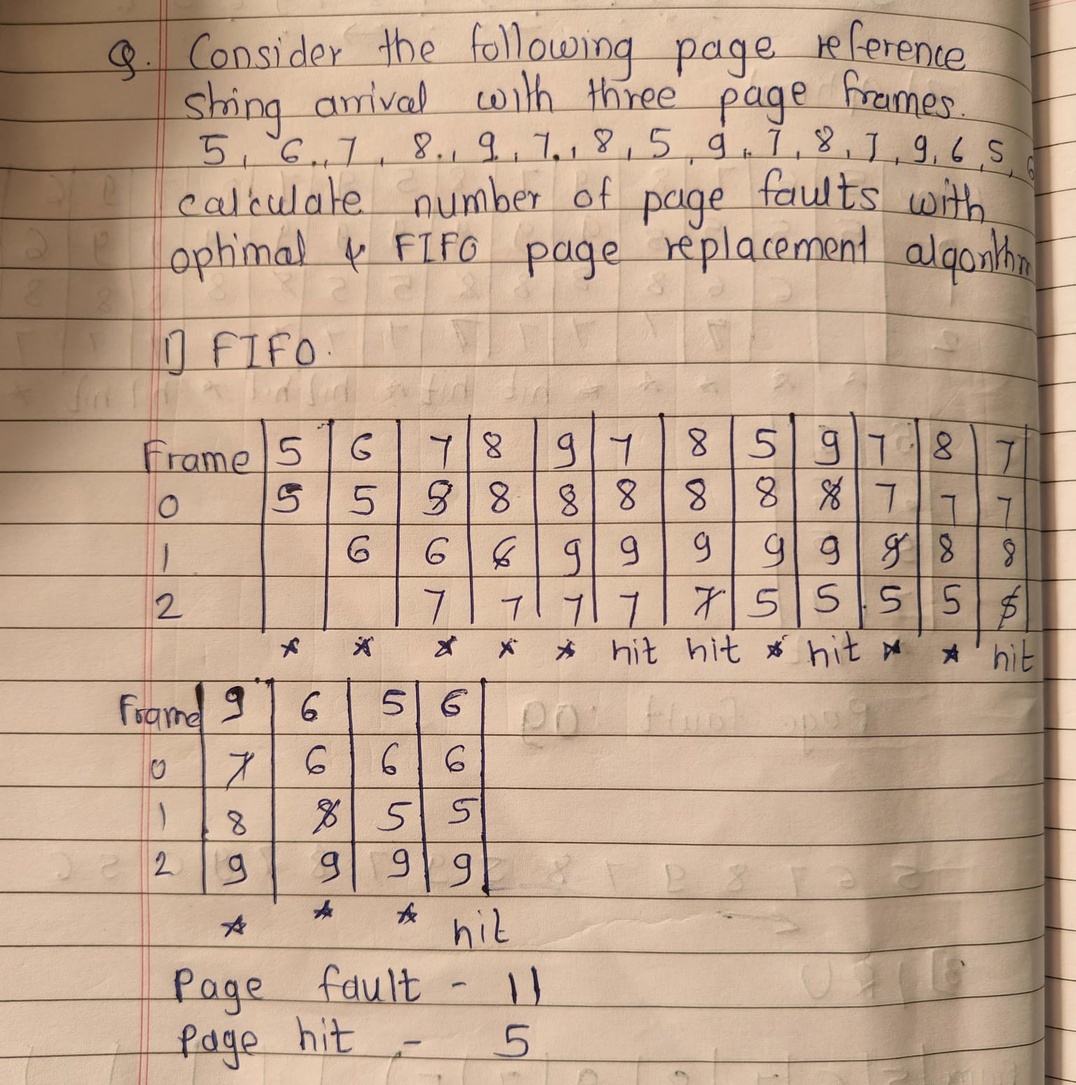 Q. Consider the following page reference
string arrival with three page frames.
5, 6, 7, 8, 9, 7, 8, 5, 9, 7, 8, 7, 9, 6, 5, 6
calculate number of page faults with
optimal & FIFO page replacement algorithm
1] FIFO.
Frame 5 6 7 8 9 7 8 5 9 7 8 7
0 5 5 5 8 8 8 8 8 8 7 7 7
1 6 6 6 9 9 9 9 9 9 8 8
2 7 7 7 7 7 5 5 5 5 5
* * * * * hit hit * hit * * hit
Frame 9 6 5 6
0 7 6 6 6
1 8 8 5 5
2 9 9 9 9
* * * hit
Page fault - 11
Page hit - 5